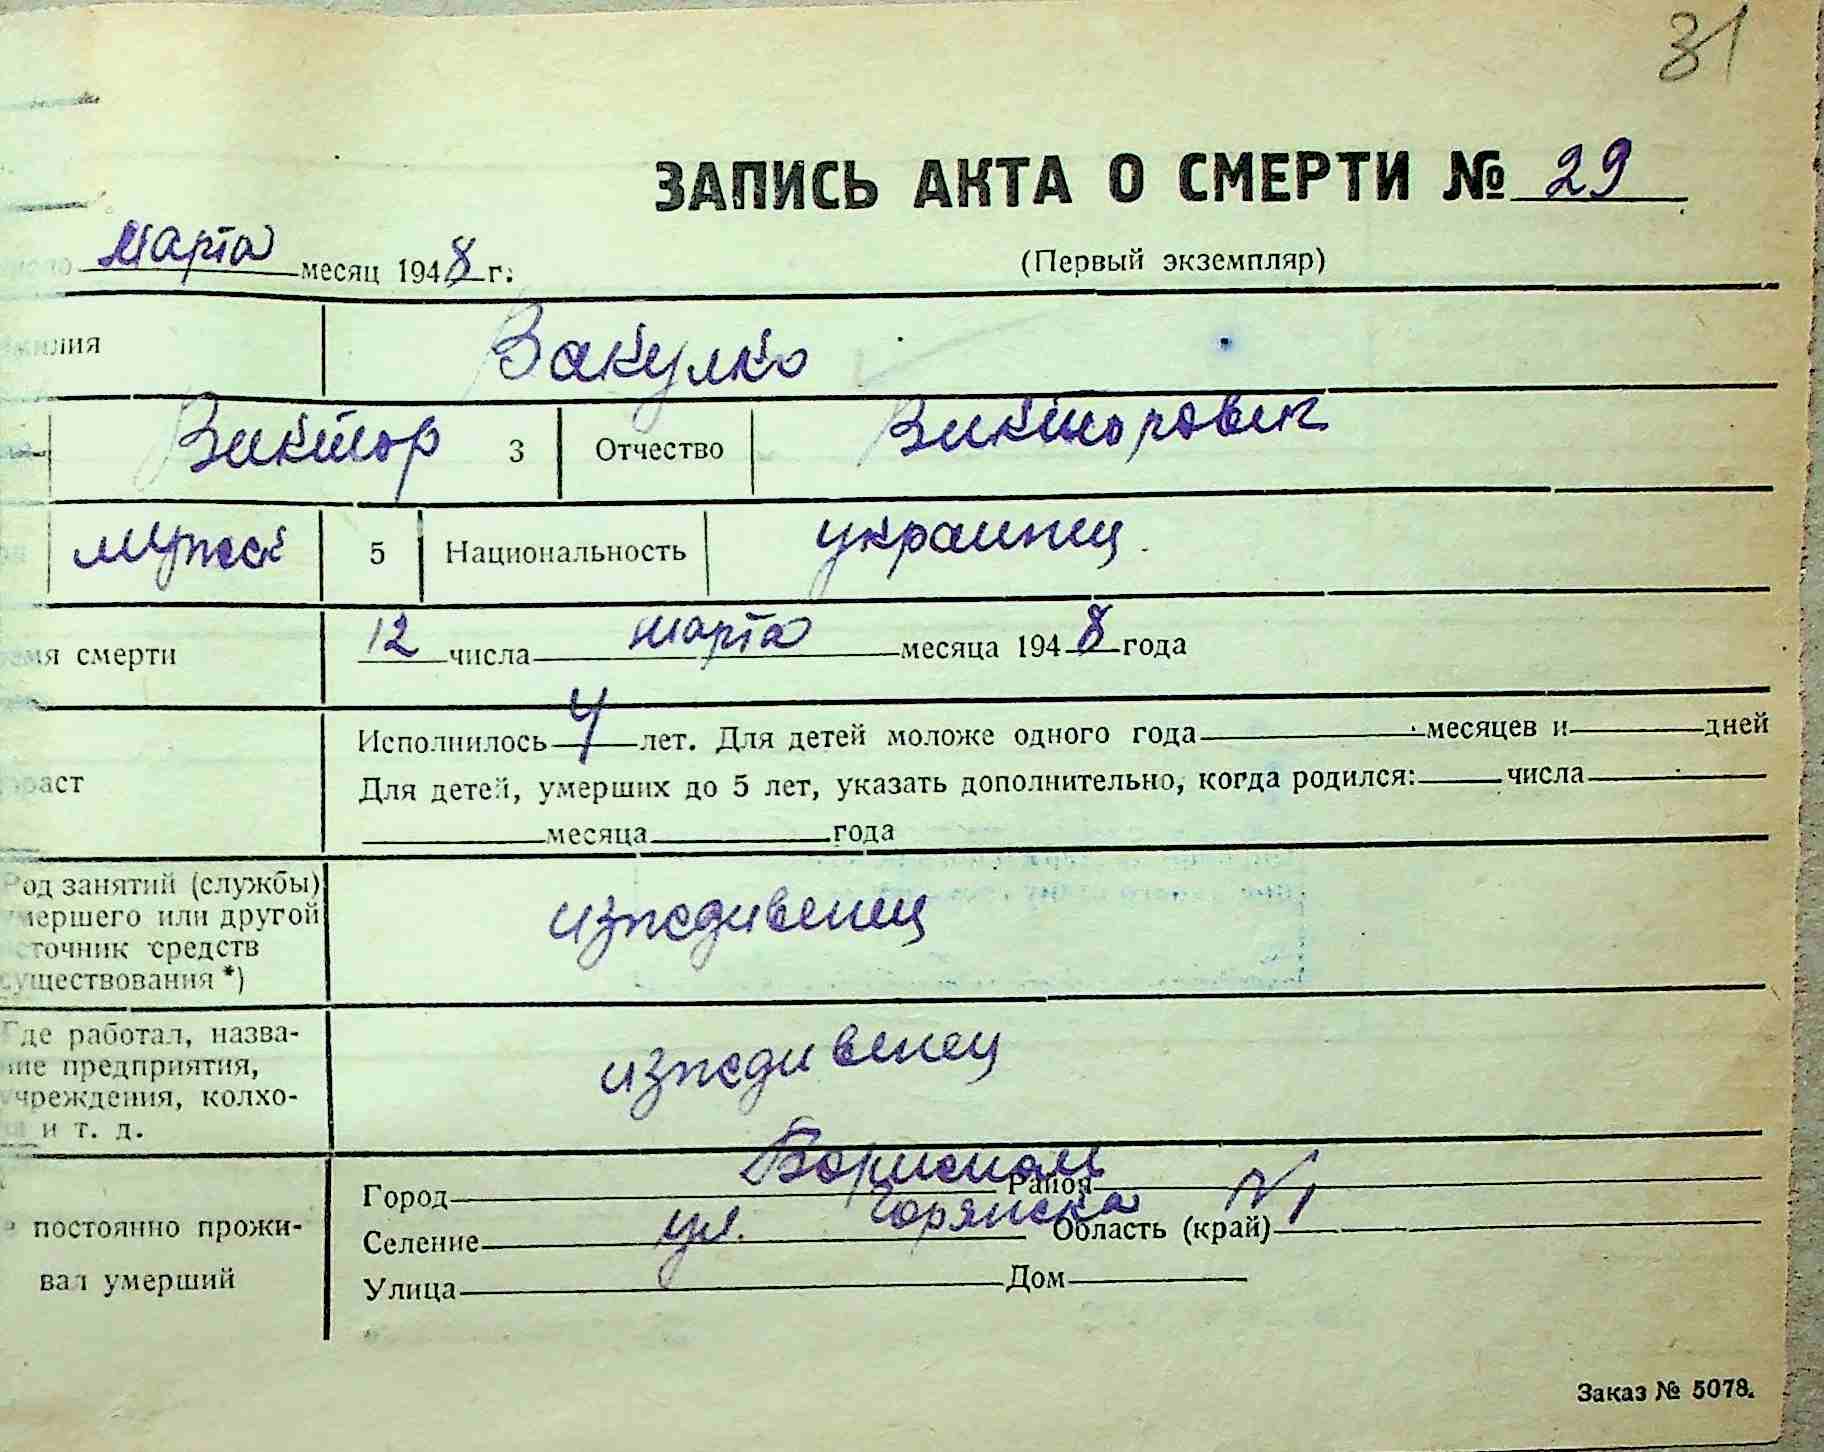 31
ЗАПИСЬ АКТА О СМЕРТИ № 29
марта месяц 1948 г.
(Первый экземпляр)
милия Вакулко
Виктор 3 Отчество Викторович
мужск 5 Национальность украинец
емя смерти 12 числа марта месяца 1948 года
Исполнилось 4 лет. Для детей моложе одного года месяцев и дней
раст Для детей, умерших до 5 лет, указать дополнительно, когда родился: числа
месяца года
Род занятий (службы)
умершего или другой
источник средств
существования *)
иждивенец
Где работал, назва-
ние предприятия,
учреждения, колхо-
и т. д.
иждивенец
Город Бориспол Район
Селение ул. Горянска Область (край) N 1
постоянно прожи-
вал умерший
Улица Дом
Заказ № 5078.